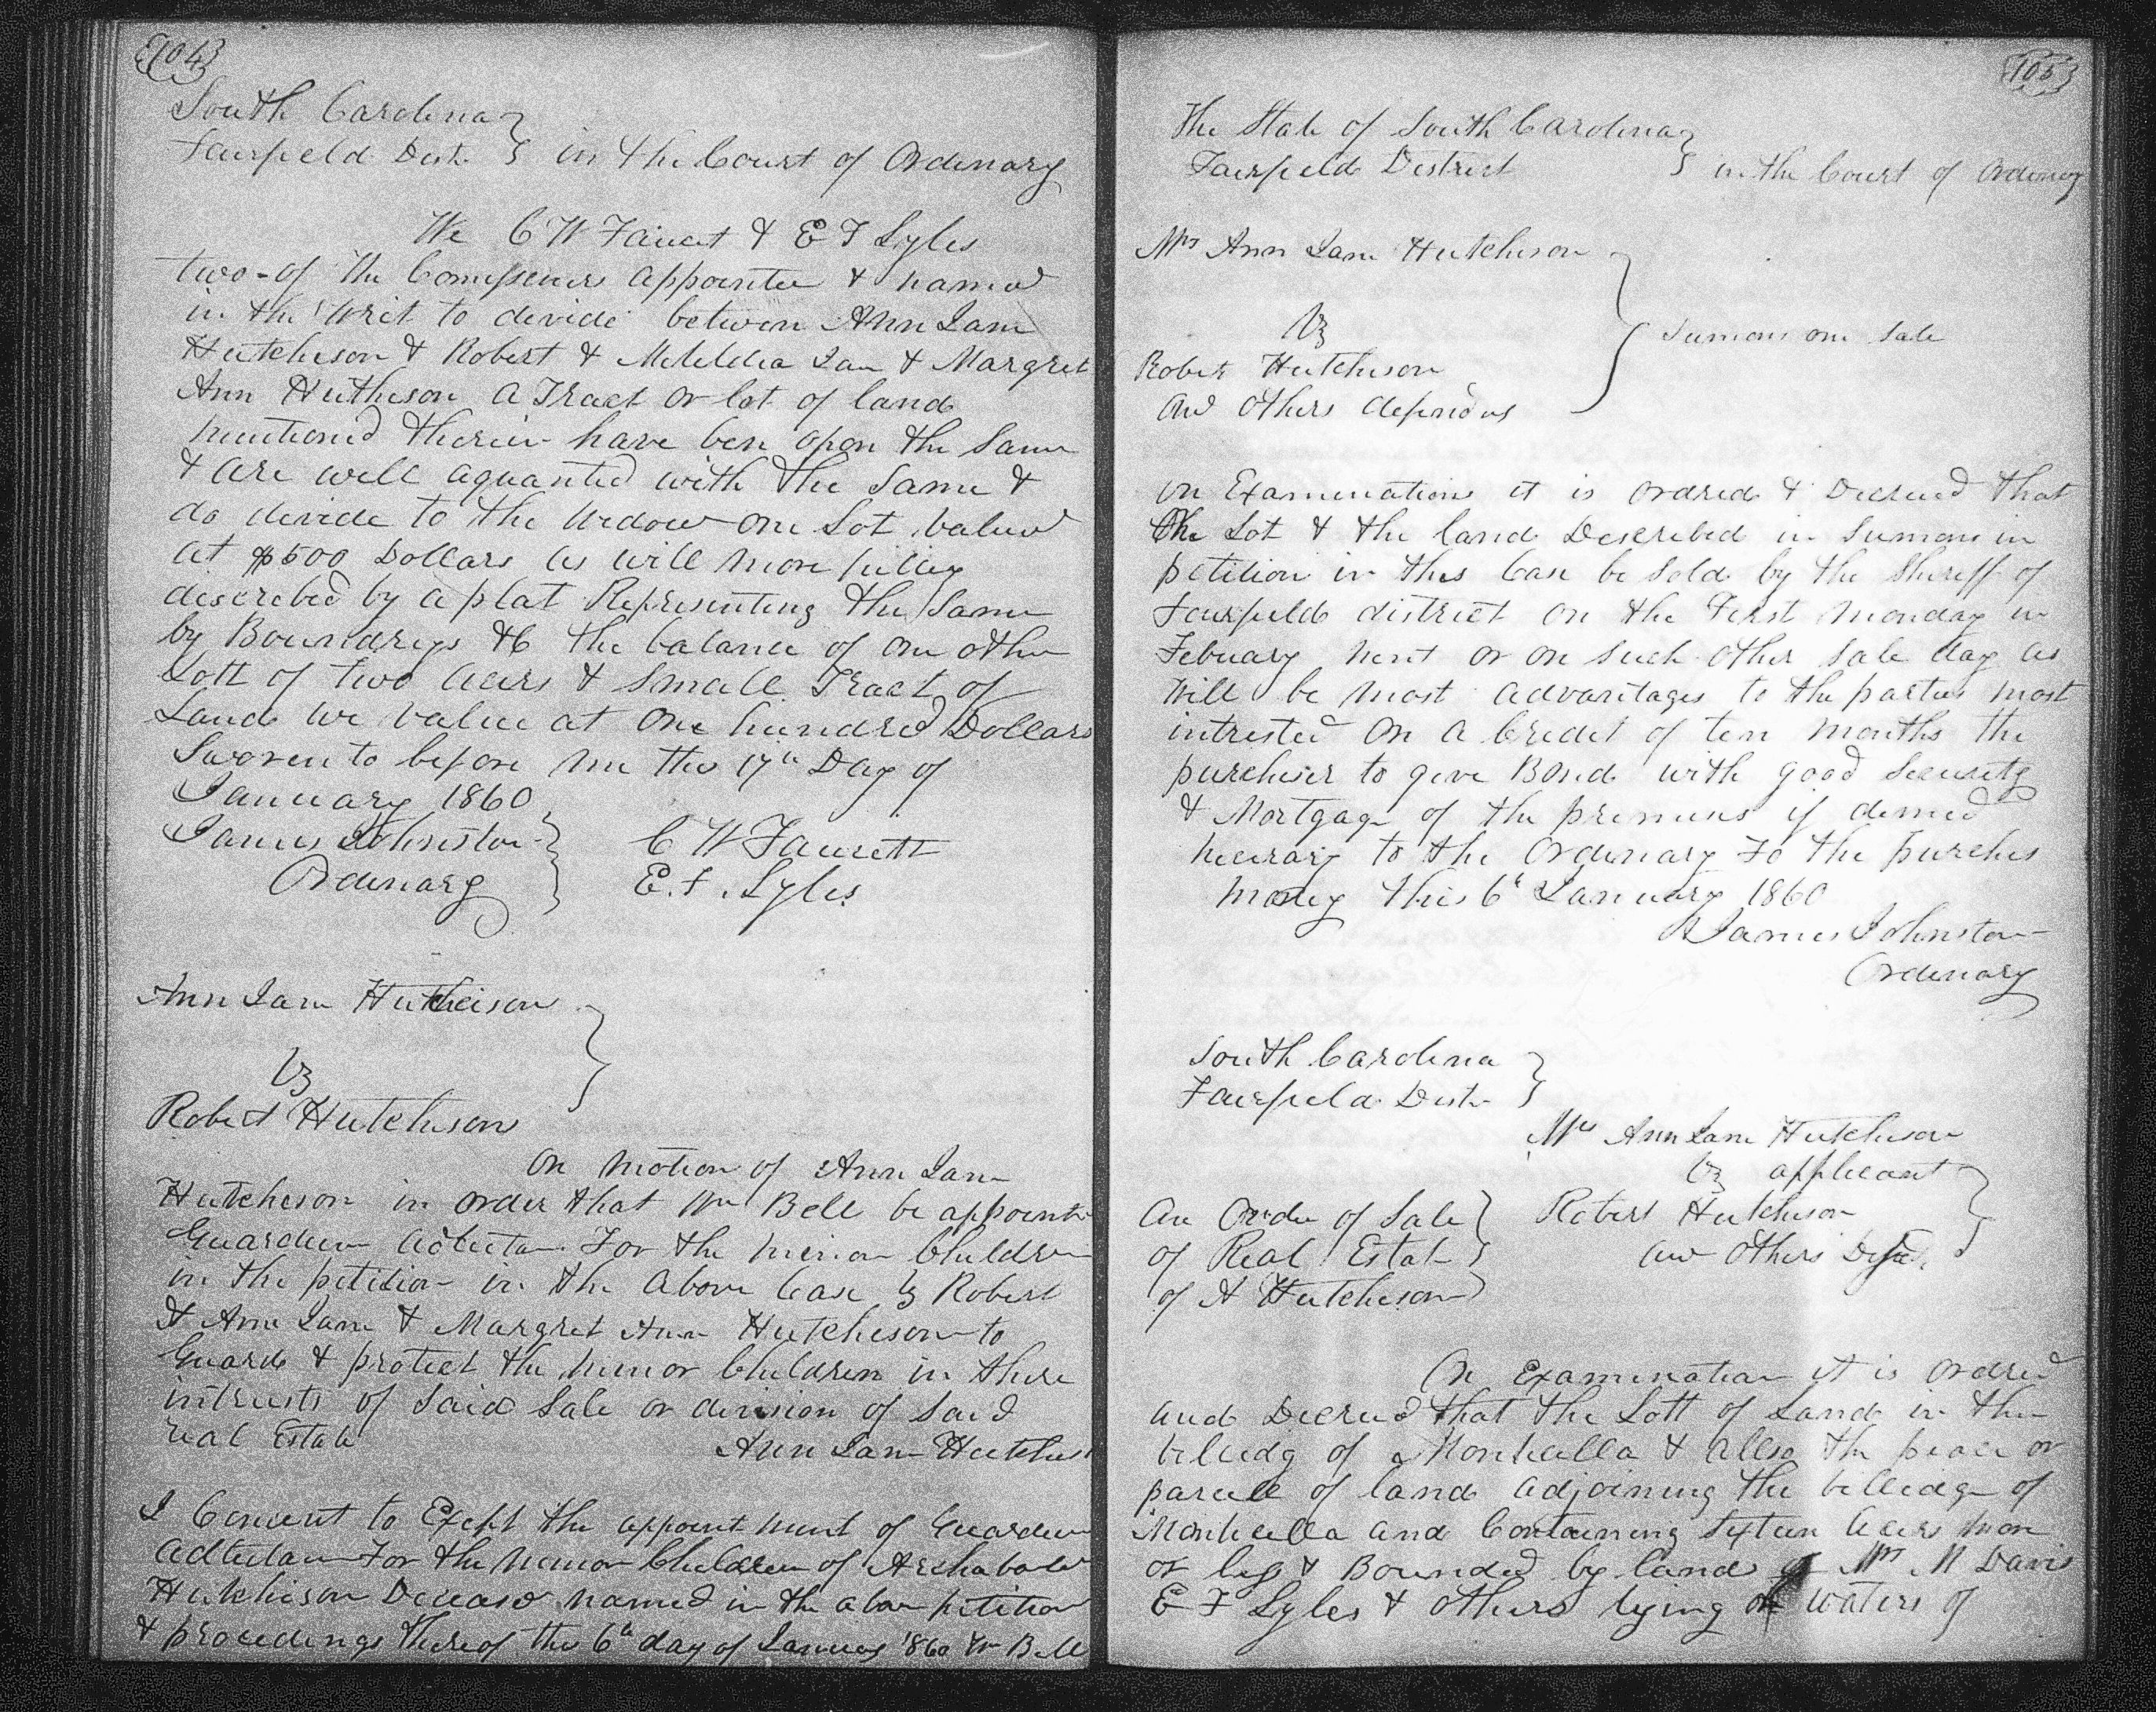 104
South Carolina }
Fairfield Dist. } in the Court of Ordinary
We C W Faucet & E F Lyles
two of the Comissioners appointed & named
in the Writ to devide between Ann Jane
Hutchison & Robert & Jane & Margret
Ann Hutheson a Tract or lot of land
mentioned therein have ben opon the Same
& are well aquanted with the Same &
do devide to the Wedow one Lot valued
at $500 Dollars as will more fulley
discribed by a plat Representing the Same
by Boundrys &c the balance of one other
Lott of two acers & Small Tract of
Land we value at One hundred Dollars
Sworen to before me this 17th Day of
January 1860
James Johnston } C W Faucett
Ordenary } E. F. Lyles
Ann Jane Hutcheison }
Vs
Robert Hutcheson
On motion of Ann Jane
Hutcheson in order that Wm Bell be appointed
Guardien For the minor Children
in the petition in the above Case Robert
& Ann Jane & Margret Ann Hutcheson to
Guard & protect the minor Children in there
intrusts of Said Sale or division of Said
real Estate
Ann Jane Hutches
I Concent to Exept the appointment of Guardien
For the minor Children of Archabald
Hutchison Deceased named in the above petition
& procedings thereof this 6th day of January 1860 Wm Bell
105
The State of South Carolina }
Fairfield District } in the Court of Ordenary
Mrs Ann Jane Hutcheson
Vs } Sumons on Sale
Robert Hutcheson
and others
on Examination it is ordred & Decreed that
the Lot & the land Described in Sumons in
petition in this Case be Sold by the Sheriff of
Fairfield district on the First Monday in
Febuary next or on Such other Sale day as
Will be most advantages to the parties most
intrested On a Credit of ten months the
purcheser to give Bond with good Security
& Mortgage of the premises if demed
to the Ordenary Fo the purches
money this 6th January 1860
James Johnston
Ordenary
South Carolina }
Fairfield Dist. }
Mrs Ann Jane Hutcheson
Vs applicant
An Order of Sale } Robert Hutcheson
of Real Estate } and others
of A Hutcheson
On Examination it is ordred
and Decreed that the Lott of Land in the
villedg of Monticella & allso the peace or
parcell of land adjoining the villedge of
Monticella and Containing Sixteen acers more
or less & Bounded by land of Mrs M Davis
E F Lyles & others lying on waters of